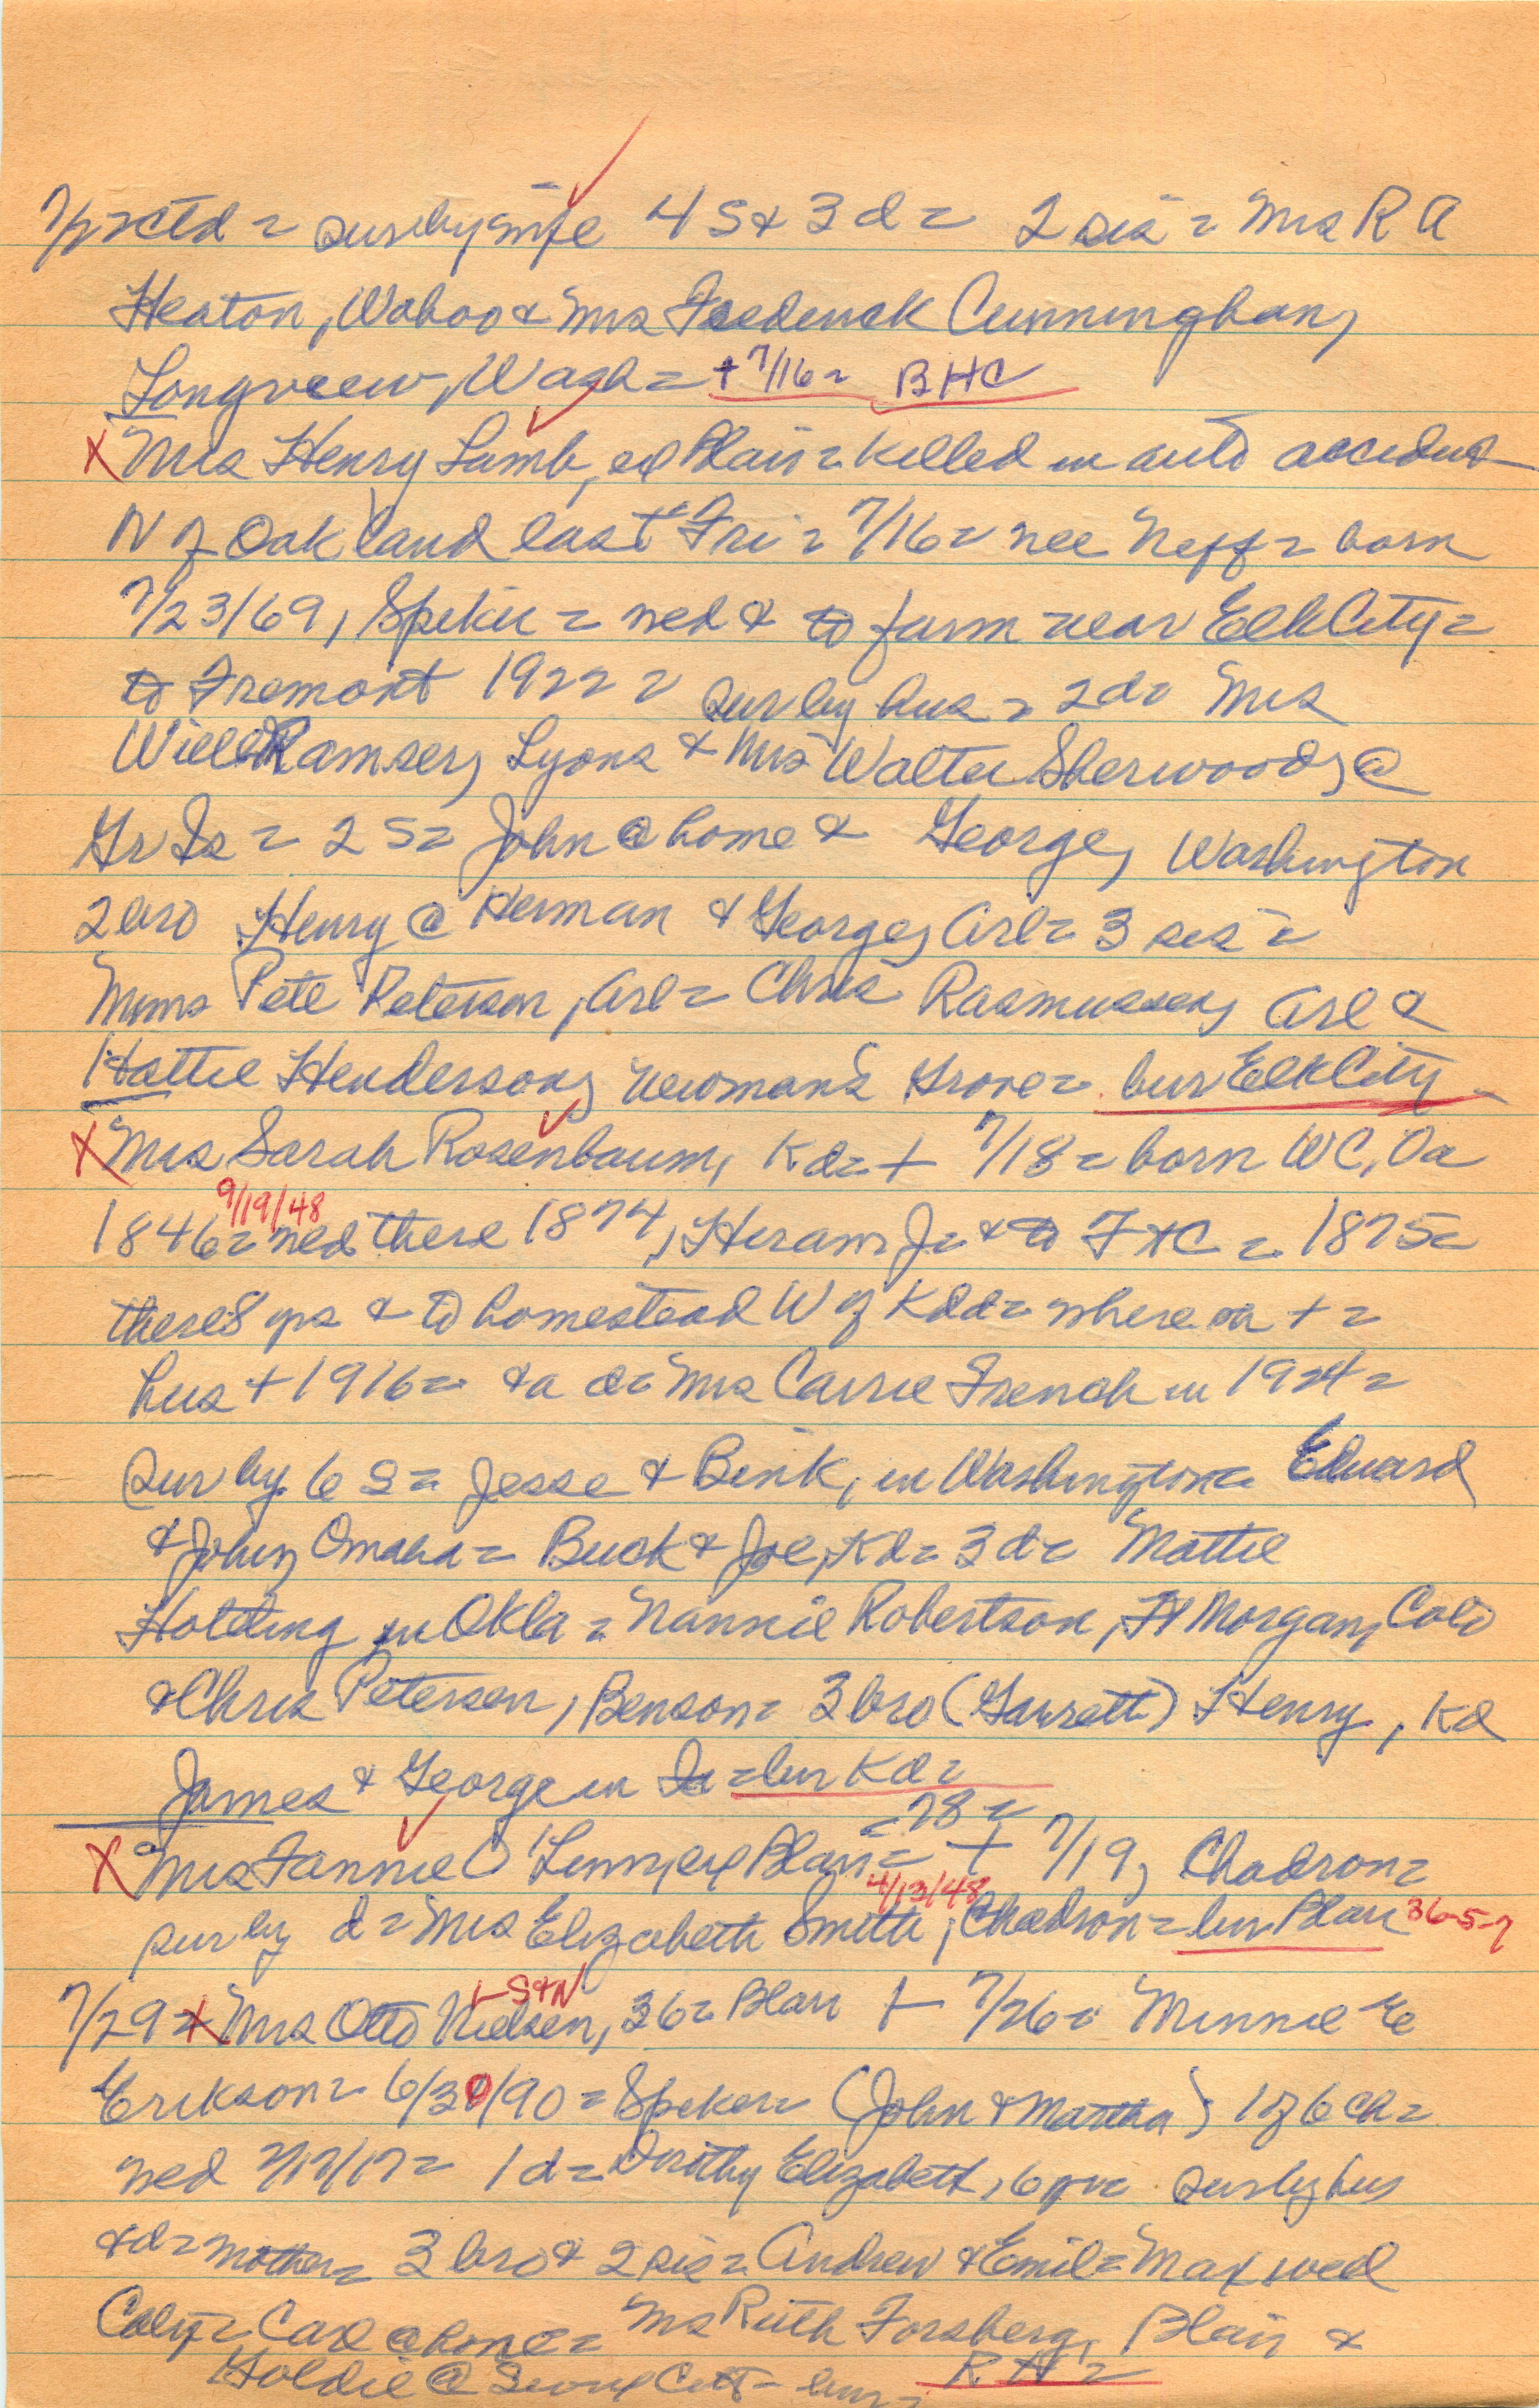 surbywife 4 S & 3 d = 2 sis = Mrs R A
Heaton, Wahoo & Mrs Frederick Cunningham,
Longview, Wash = + 7/16 = BHC
X Mrs Henry Lamb, ex Blair = killed in auto accident
N of Oakland last Fri = 7/16 = nee Neff = born
7/23/69, Speker = wed & to farm near Elk City =
to Fremont 1922 = sur by hus = 2 d = Mrs
Will Ramsey, Lyons & Mrs Walter Sherwood, @
Gr Is = 2 S = John @ home & George, Washington
2 bro Henry @ Herman & George, Arl = 3 sis =
Mmes Pete Peterson, Arl = Chris Rasmussen, Arl &
Hattie Henderson, Newman's Grove = bur Elk City
X Mrs Sarah Rosenbaum, Kd = + 7/18 = born WC, Va
9/19/48
1846 = wed there 1874, Hiram Jr & to Ft C = 1875 =
there 8 yrs & to homestead W of Kd = where + =
hus + 1916 = & a d = Mrs Carrie French in 1924 =
sur by 6 S = Jesse & Bink, in Washington = Edward
& John, Omaha = Buck & Joe, Kd = 3 d = Mattie
Holding in Okla = Nannie Robertson, Ft Morgan, Colo
& Chris Petersen, Benson = 3 bro (Garrett) Henry, Kd
James & George in = bur Kd =
= 78 =
X Mrs Fannie O Linn, ex Blair = + 7/19, Chadron =
4/13/48
sur by d = Mrs Elizabeth Smith, Chadron = bur Blair 36-5-7
+ S+N
7/29 = X Mrs Otto Nielsen, 36 = Blair + 7/26 = Minnie E
Erikson = 6/30/90 = Speker = (John & Martha) 1 of 6 ch =
wed 7/17/17 = 1 d = Dorothy Elizabeth, 6 sur by hus
& d = mother = 3 bro & 2 sis = Andrew & Emil = Maxwell
Calif = Carl @ home = Mrs Ruth Forsberg, Blair &
Goldie @ Sioux City = bur = R H =